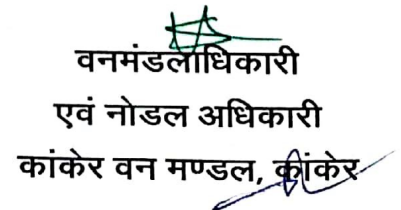 वनमंडलाधिकारी
एवं नोडल अधिकारी
कांकेर वन मण्डल, कांकेर